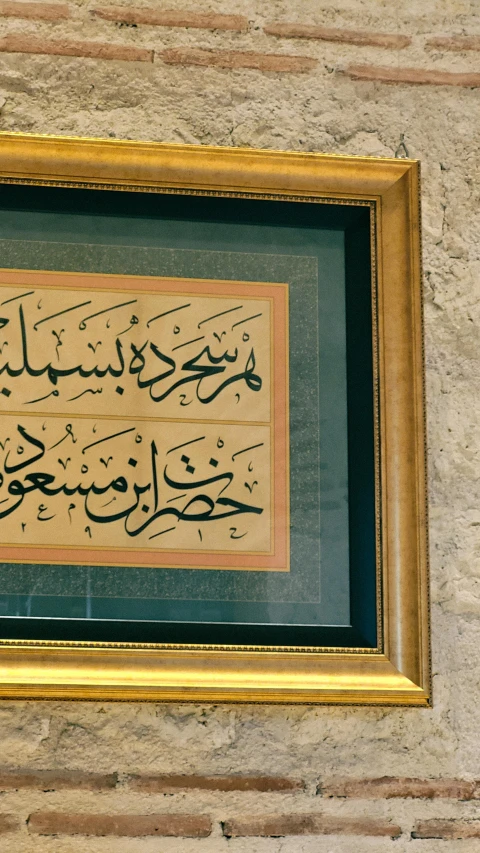 هر سحرده بسمله
حضرت ابن مسعود